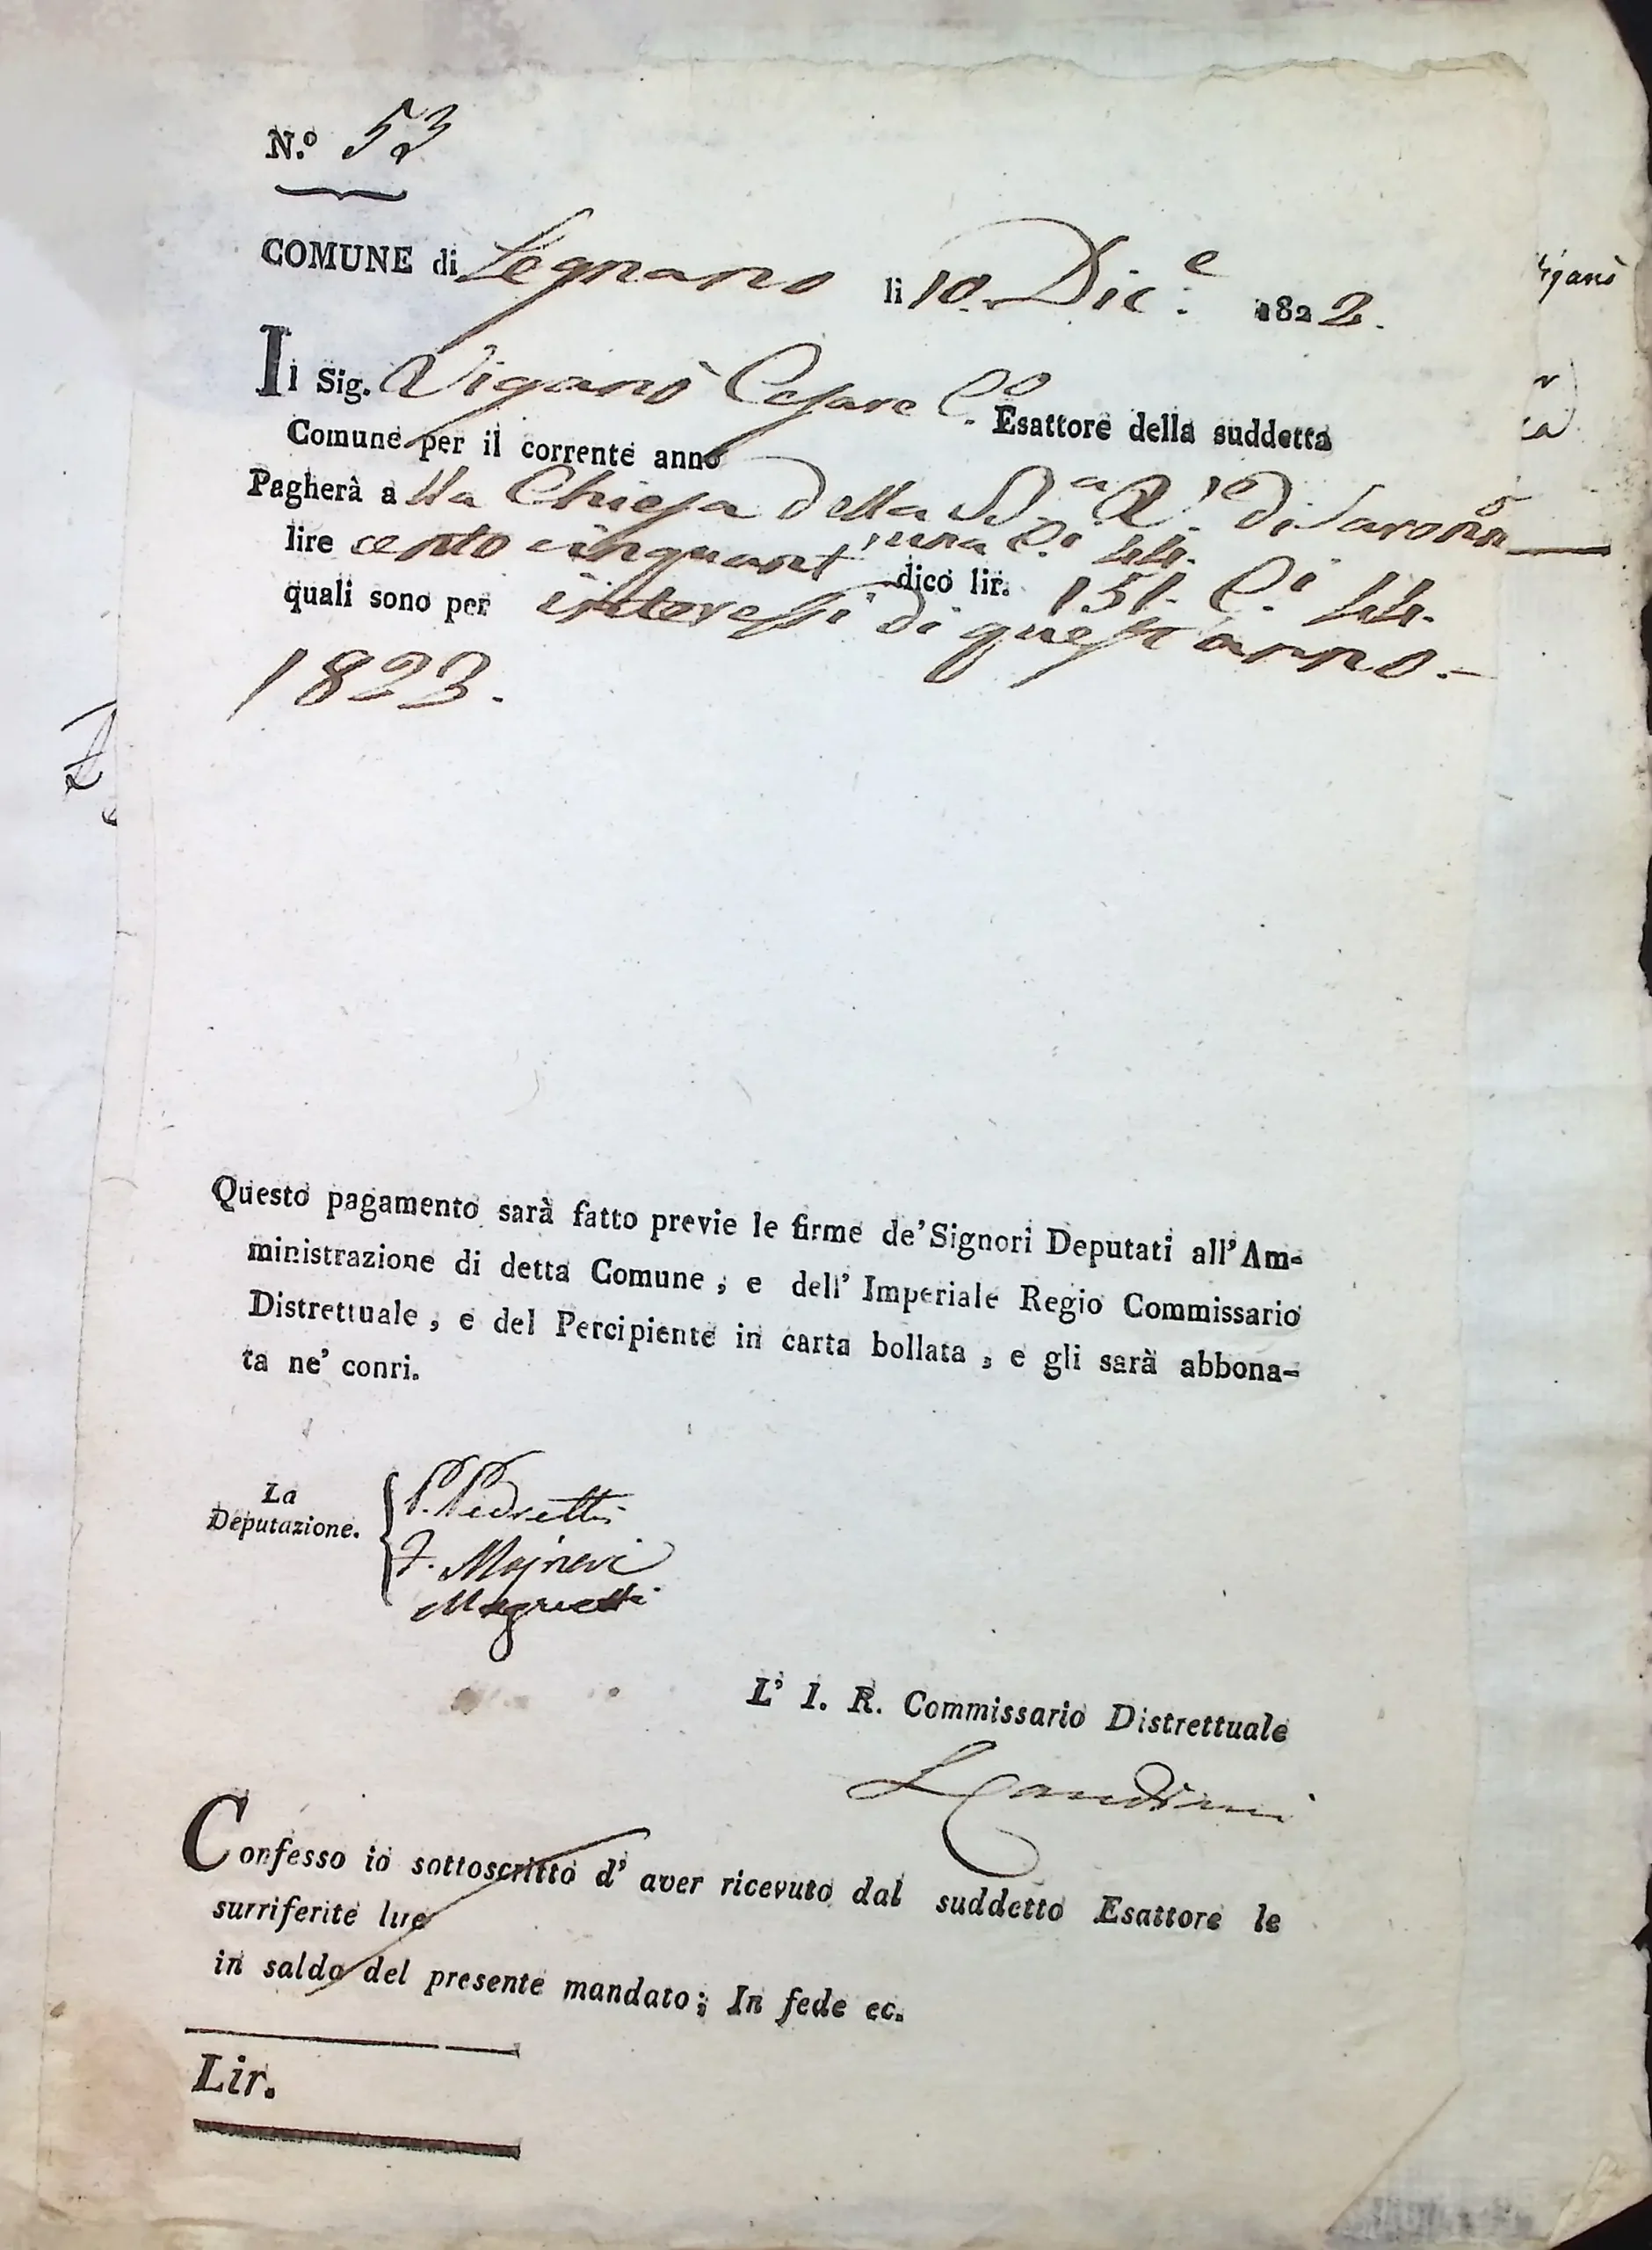 N.º 53
COMUNE di Legnano li 10. Dic.e 1822.
Il Sig. Viganò Cesare C.o Esattore della suddetta
Comune per il corrente anno
Pagherà alla Chiesa della di Saronno
lire cento cinquant'una C.i 44.
dico lir. 151. C.i 44.
quali sono per interessi di quest'anno.
1823.
Questo pagamento sarà fatto previe le firme de' Signori Deputati all' Am-
ministrazione di detta Comune, e dell' Imperiale Regio Commissario
Distrettuale, e del Percipiente in carta bollata, e gli sarà abbona-
ta ne' conri.
La
Deputazione.
P. Pedretti
F. Majneri
L' I. R. Commissario Distrettuale
Confesso io sottoscritto d' aver ricevuto dal suddetto Esattore le
surriferite lire
in saldo del presente mandato; In fede ec.
Lir.